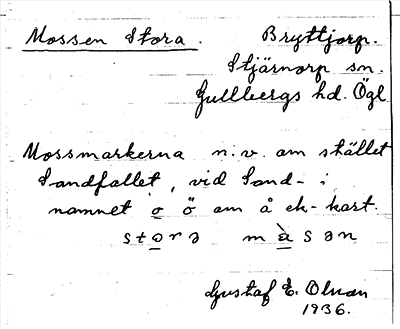 Mossen Stora. Bryttjorp.
Stjärnorp sn.
Gullbergs hd. Ögl
Mossmarkerna n.v. om stället
Sandfallet, vid Sand- i
namnet o ö om å ek-kart.
storə màsən
Gustaf E. Olson
1936.